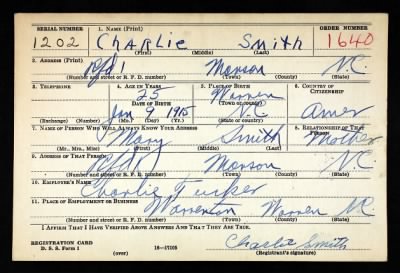 SERIAL NUMBER 1. NAME (Print) ORDER NUMBER
1202 CHARLIE Smith 1640
(First) (Middle) (Last)
2. ADDRESS (Print)
Rfd 1 Manson N.C.
(Number and street or R. F. D. number) (Town) (County) (State)
3. TELEPHONE 4. AGE IN YEARS 5. PLACE OF BIRTH 6. COUNTRY OF CITIZENSHIP
25 Warren
DATE OF BIRTH (Town or county)
Jan 9 1915 N.C. Amer
(Exchange) (Number) (Mo.) (Day) (Yr.) (State or country)
7. NAME OF PERSON WHO WILL ALWAYS KNOW YOUR ADDRESS 8. RELATIONSHIP OF THAT PERSON
Mary Smith Mother
(Mr., Mrs., Miss) (First) (Middle) (Last)
9. ADDRESS OF THAT PERSON
Rfd 1 Manson N.C.
(Number and street or R. F. D. number) (Town) (County) (State)
10. EMPLOYER'S NAME
Charlie Tucker
11. PLACE OF EMPLOYMENT OR BUSINESS
Warrenton Warren NC
(Number and street or R. F. D. number) (Town) (County) (State)
I AFFIRM THAT I HAVE VERIFIED ABOVE ANSWERS AND THAT THEY ARE TRUE.
Charlie Smith
REGISTRATION CARD
D. S. S. Form 1 16—17105 (Registrant's signature)
(over)